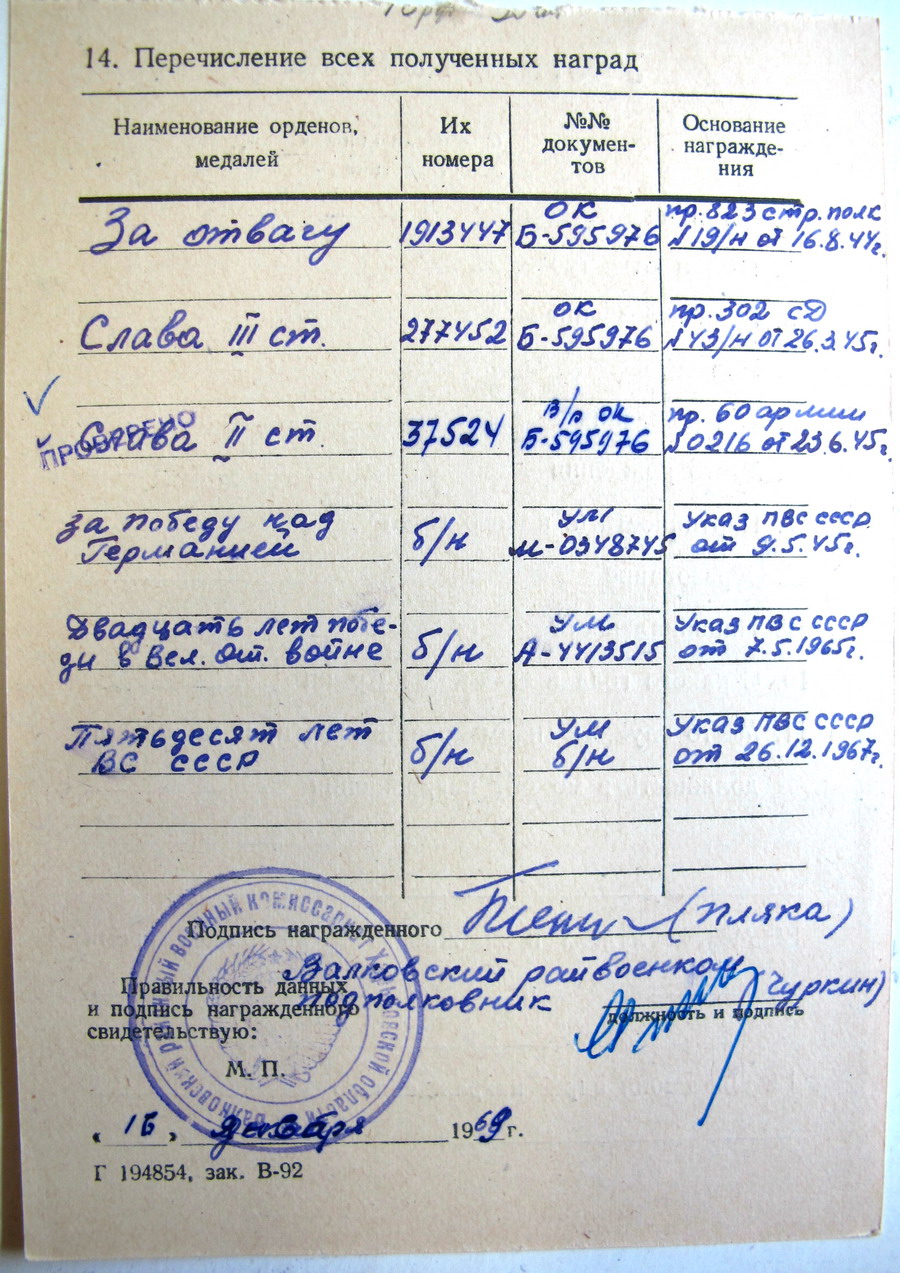 14. Перечисление всех полученных наград
Наименование орденов,
медалей
Их
номера
№№
докумен-
тов
Основание
награжде-
ния
За отвагу
1913447
ОК
Б-595976
пр. 823 стр. полк
№19/н от 16.8.44г.
Слава III ст.
277452
ОК
Б-595976
пр. 302 сд
№43/н от 26.3.45г.
ПРОВЕРЕНО
Слава II ст.
37524
в/р ок
Б-595976
пр. 60 армии
№0216 от 23.6.45г.
За победу над
Германией
б/н
УМ
М-0348745
Указ ПВС СССР
от 9.5.45г.
Двадцать лет побе-
ды в Вел. От. войне
б/н
УМ
А-4413515
Указ ПВС СССР
от 7.5.1965г.
Пятьдесят лет
ВС СССР
б/н
УМ
б/н
Указ ПВС СССР
от 26.12.1967г.
Подпись награжденного (Пляка)
Правильность данных
и подпись награжденного
свидетельствую:
Валковский райвоенком
подполковник
(Чуркин)
должность и подпись
М. П.
Валковский районный военный комиссариат Харьковской области
« 16 » декабря 1969 г.
Г 194854, зак. В-92